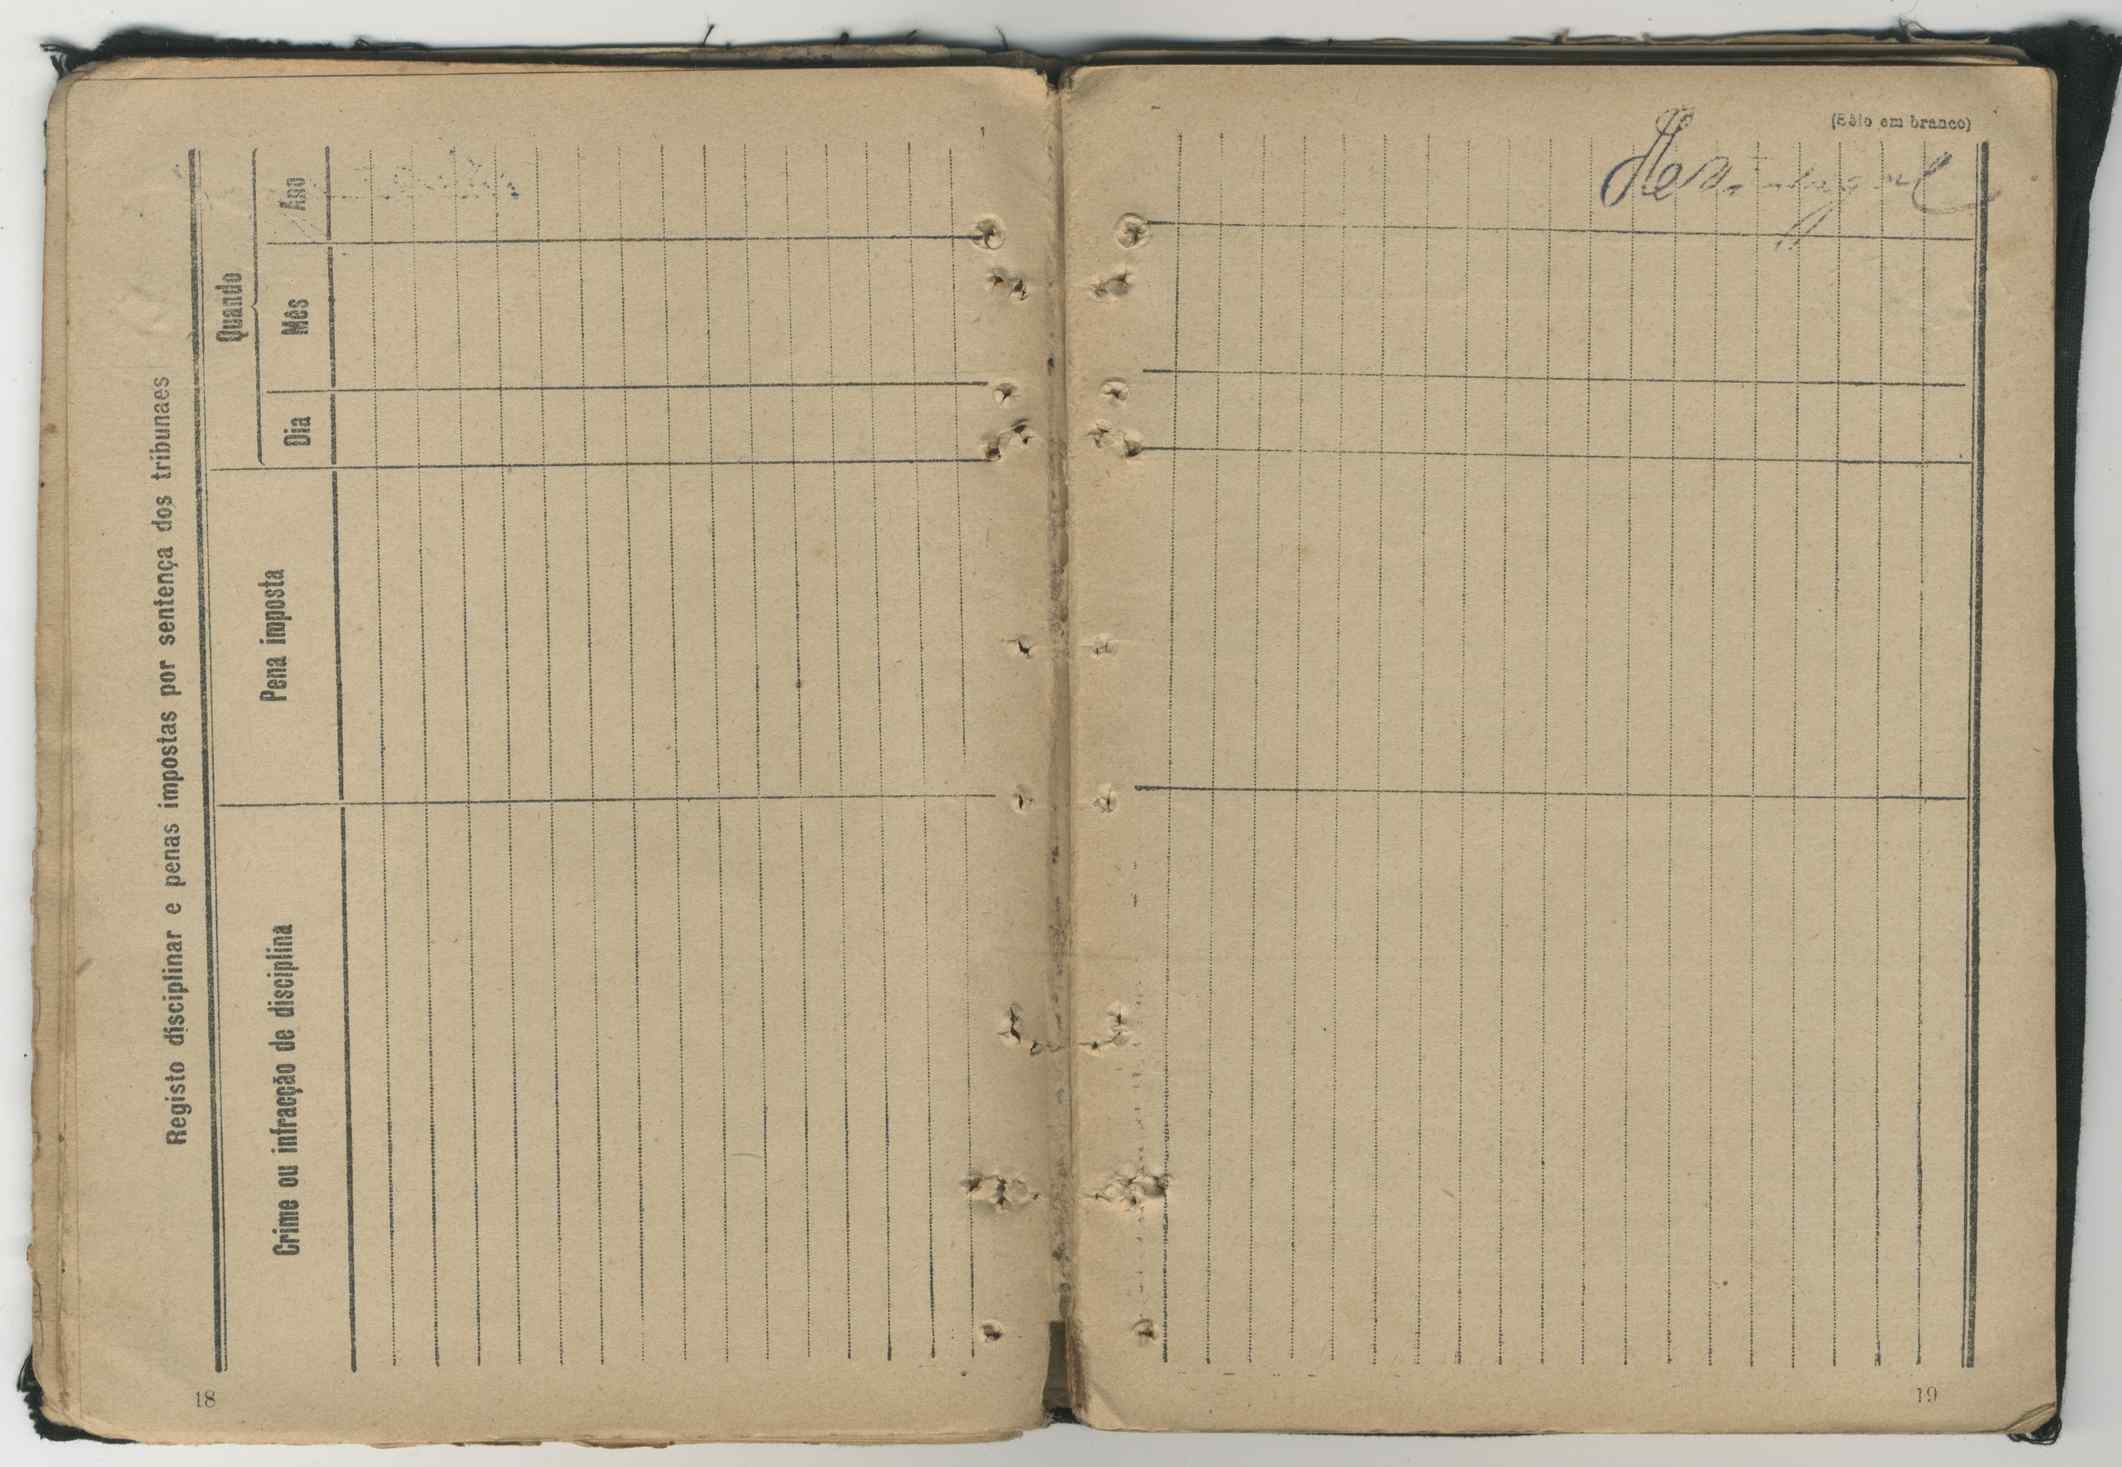 Registo disciplinar e penas impostas por sentença dos tribunaes
Crime ou infracção de disciplina
Pena imposta
Quando
Dia
Mês
Ano
18
(Sêlo em branco)
19